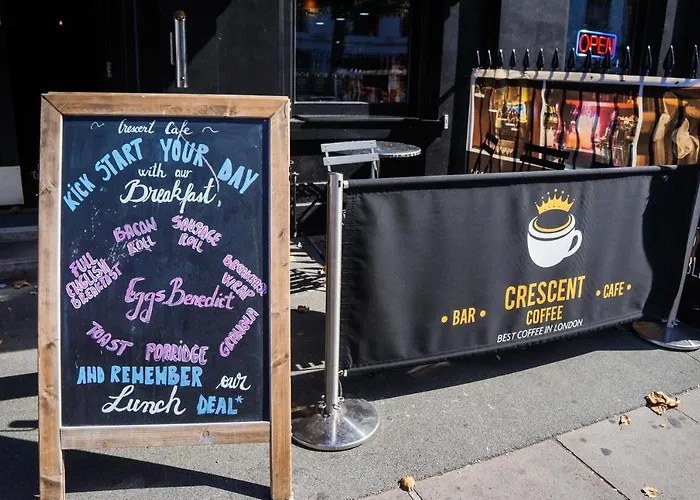 Crescent Cafe
KICK START YOUR DAY
with our
Breakfast,
BACON
ROLL
SAUSAGE
ROLL
FULL
ENGLISH
BREAKFAST
Eggs Benedict
BREAKFAST
WRAP
GRANOLA
TOAST
PORRIDGE
AND REMEMBER our
Lunch DEAL*
OPEN
CRESCENT
COFFEE
• BAR •
• CAFE •
BEST COFFEE IN LONDON